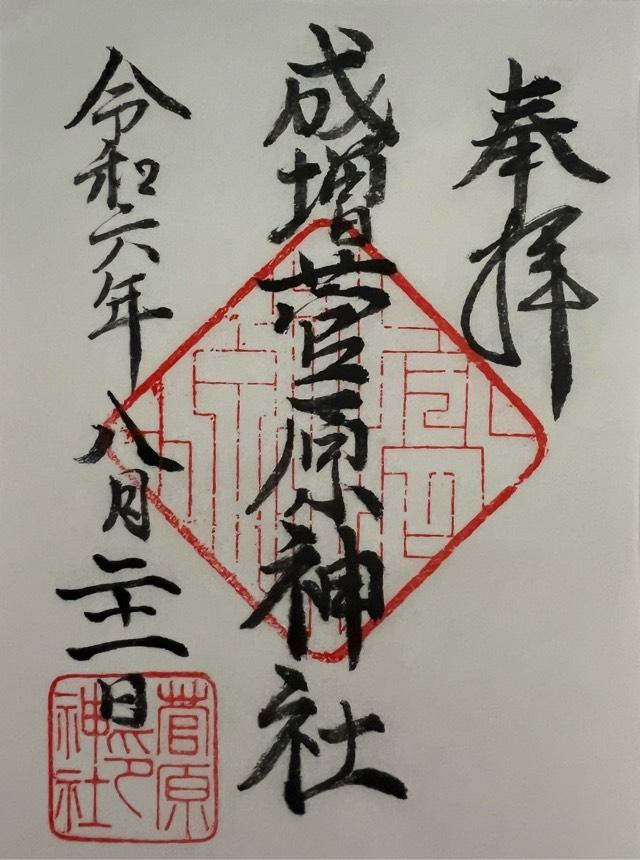 奉拝
成増菅原神社
令和六年八月二十一日
菅原
神社